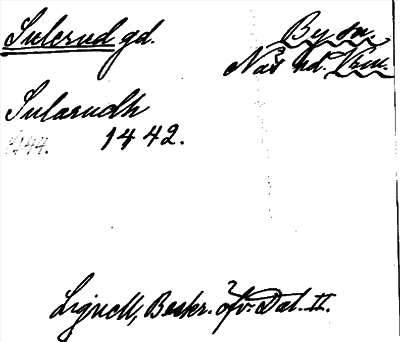 Sulerud gd.
By sn.
Näs hd. Vrm.
Sularudh
1442.
Lignell, Beskr. öfv. Dal. II.